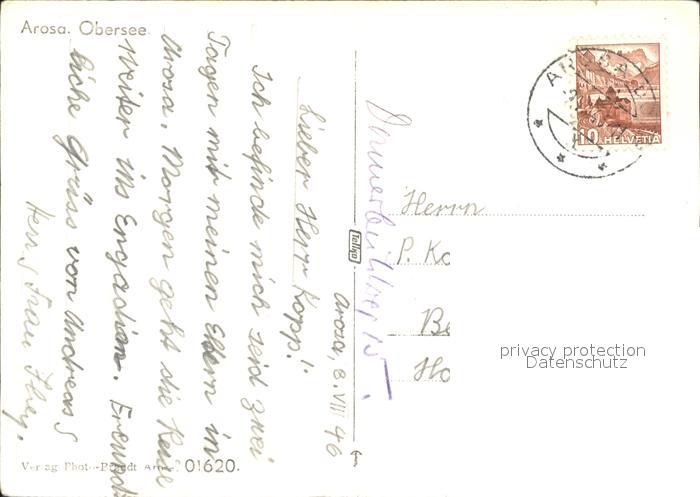 Arosa. Obersee
Arosa, 8. VIII 46
Lieber Herr Kopp!
Ich befinde mich seid zwei
Tagen mit meinen Eltern in
Arosa. Morgen geht die Reise
weiter ins Engadin.
liche Grüss von Andreas
Frau
Verlag Photo-Brandt Arosa 01620.
Tellko
10 HELVETIA
Herrn
P. Ko
Be
Ho
privacy protection
Datenschutz